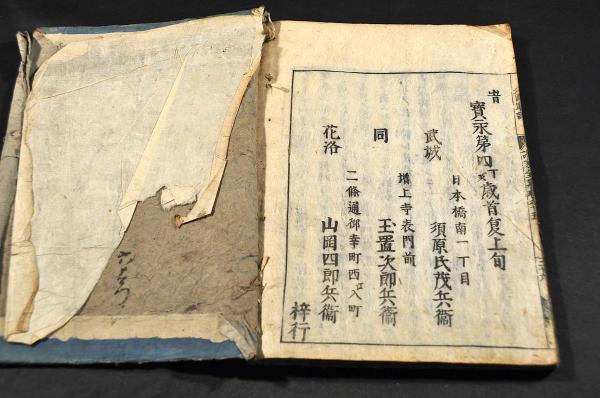 旹
寶永第四丁亥歳首夏上旬
武城
日本橋南一丁目
須原氏茂兵衞
同
増上寺表門前
玉置次郎兵衞
花洛
二條通御幸町西入町
山岡四郎兵衞
梓行